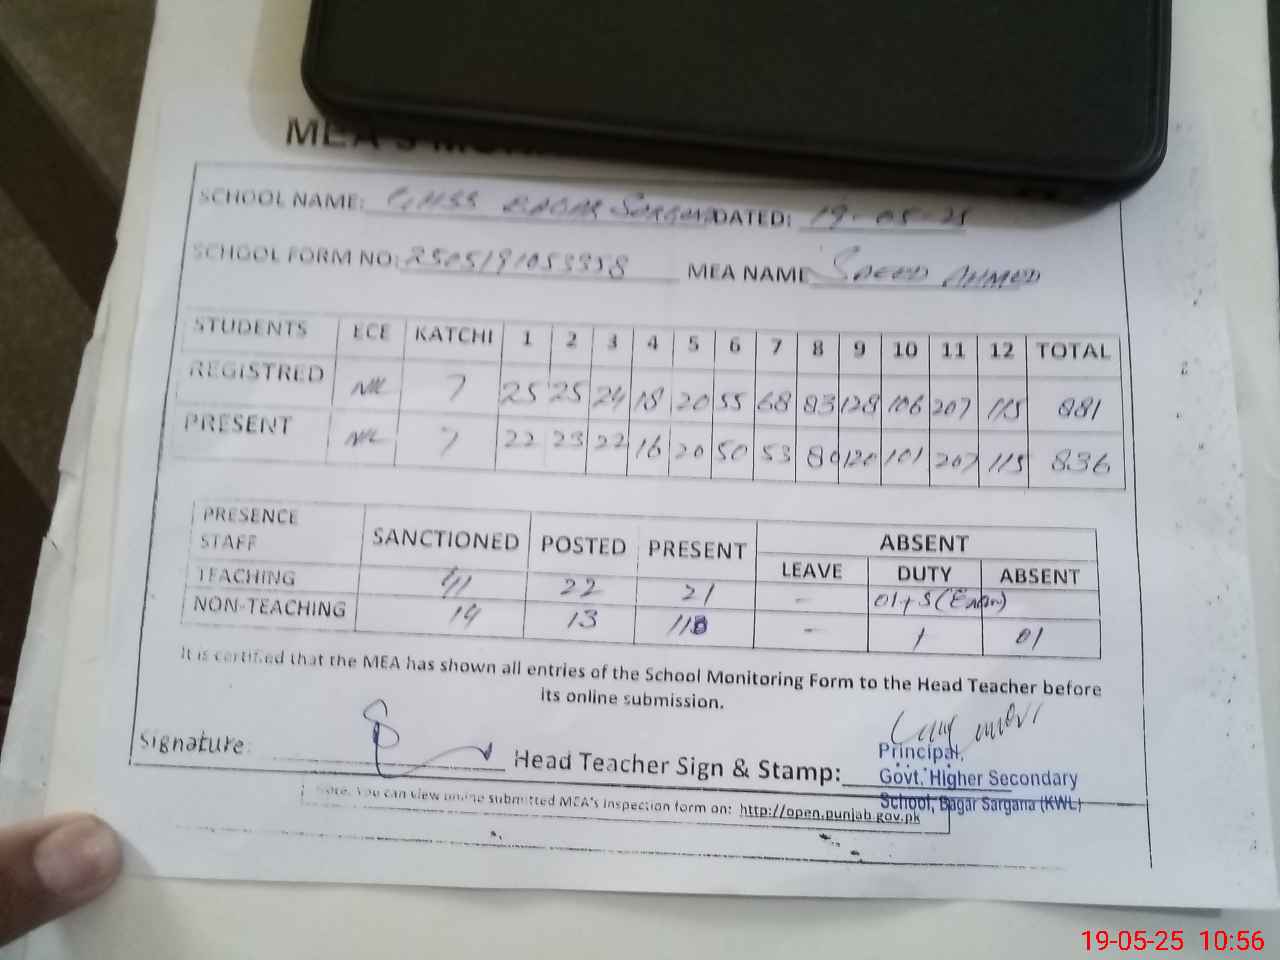 MEA'S
SCHOOL NAME: GHSS BAGAR SARGANA DATED: 19-05-25
SCHOOL FORM NO: 2505191053358 MEA NAME SAEED AHMED
STUDENTS ECE KATCHI 1 2 3 4 5 6 7 8 9 10 11 12 TOTAL
REGISTRED NIL 7 25 25 24 18 20 55 68 83 128 106 207 115 881
PRESENT NIL 7 22 23 22 16 20 50 53 80 120 101 207 115 836
PRESENCE STAFF SANCTIONED POSTED PRESENT ABSENT
LEAVE DUTY ABSENT
TEACHING 41 22 21 - 01+5(Exam)
NON-TEACHING 14 13 11 - 1 01
It is certified that the MEA has shown all entries of the School Monitoring Form to the Head Teacher before
its online submission.
Signature: Head Teacher Sign & Stamp:
Principal,
Govt. Higher Secondary
School, Bagar Sargana (KWL)
Note: You can view online submitted MEA's inspection form on: http://open.punjab.gov.pk
19-05-25 10:56